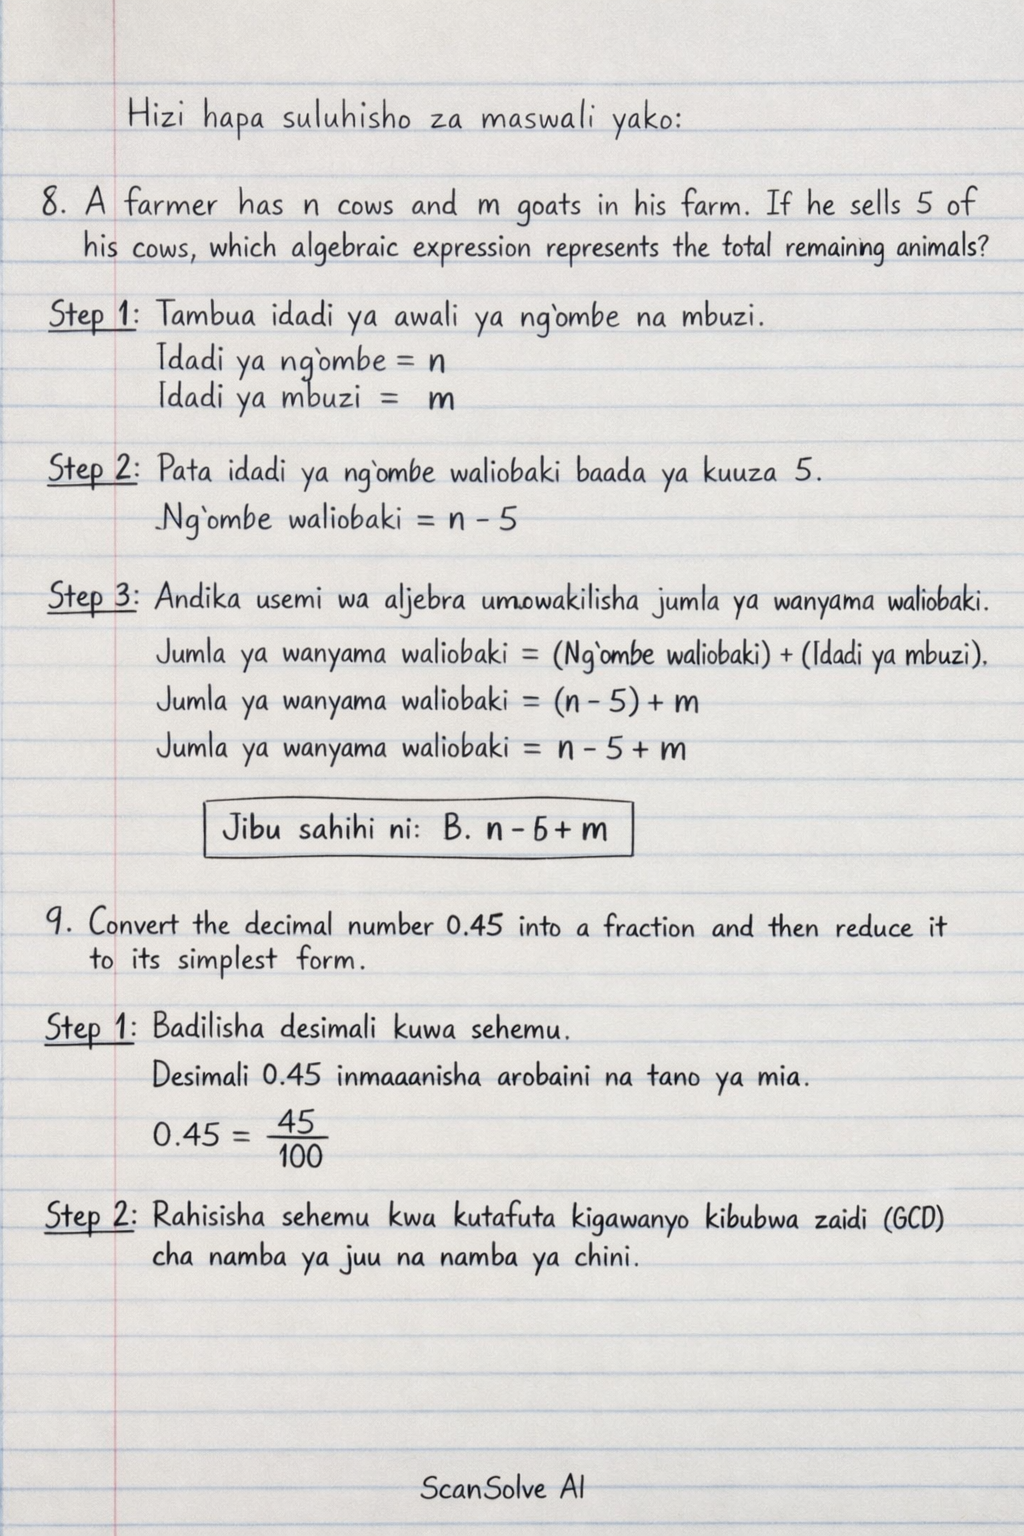 Hizi hapa suluhisho za maswali yako:
8. A farmer has n cows and m goats in his farm. If he sells 5 of
his cows, which algebraic expression represents the total remaining animals?
Step 1: Tambua idadi ya awali ya ng'ombe na mbuzi.
Idadi ya ng'ombe = n
Idadi ya mbuzi = m
Step 2: Pata idadi ya ng'ombe waliobaki baada ya kuuza 5.
Ng'ombe waliobaki = n - 5
Step 3: Andika usemi wa aljebra umowakilisha jumla ya wanyama waliobaki.
Jumla ya wanyama waliobaki = (Ng'ombe waliobaki) + (Idadi ya mbuzi).
Jumla ya wanyama waliobaki = (n - 5) + m
Jumla ya wanyama waliobaki = n - 5 + m
Jibu sahihi ni: B. n - 5 + m
9. Convert the decimal number 0.45 into a fraction and then reduce it
to its simplest form.
Step 1: Badilisha desimali kuwa sehemu.
Desimali 0.45 inmaaanisha arobaini na tano ya mia.
0.45 = 45/100
Step 2: Rahisisha sehemu kwa kutafuta kigawanyo kibubwa zaidi (GCD)
cha namba ya juu na namba ya chini.
ScanSolve AI